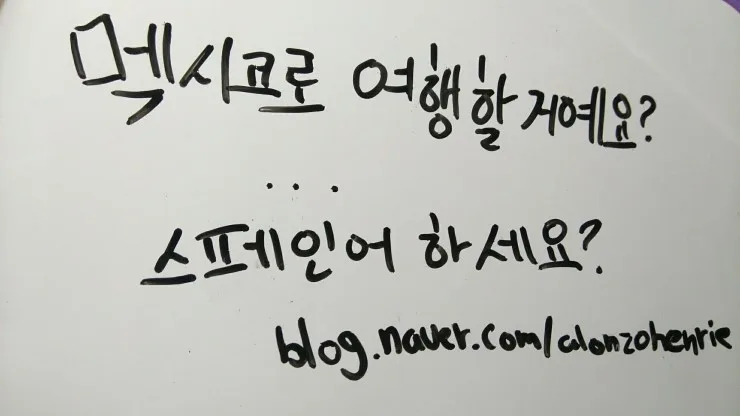 멕시코로 여행할 거예요?
...
스페인어 하세요?
blog.naver.com/alonzohenrie